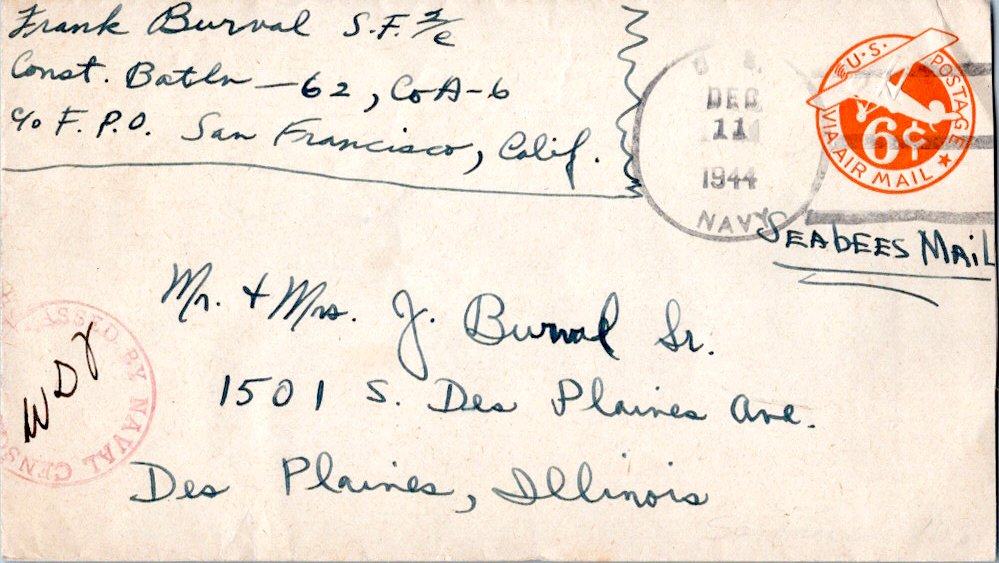 Frank Burval S.F. 2/c
Const. Batln — 62, Co A-6
c/o F.P.O. San Francisco, Calif.
U.S. POSTAGE
6¢
VIA AIR MAIL
DEC
11
1944
NAVY
SEABEES MAIL
Mr. + Mrs. J. Burval Sr.
1501 S. Des Plaines Ave.
Des Plaines, Illinois
PASSED BY NAVAL CENSOR